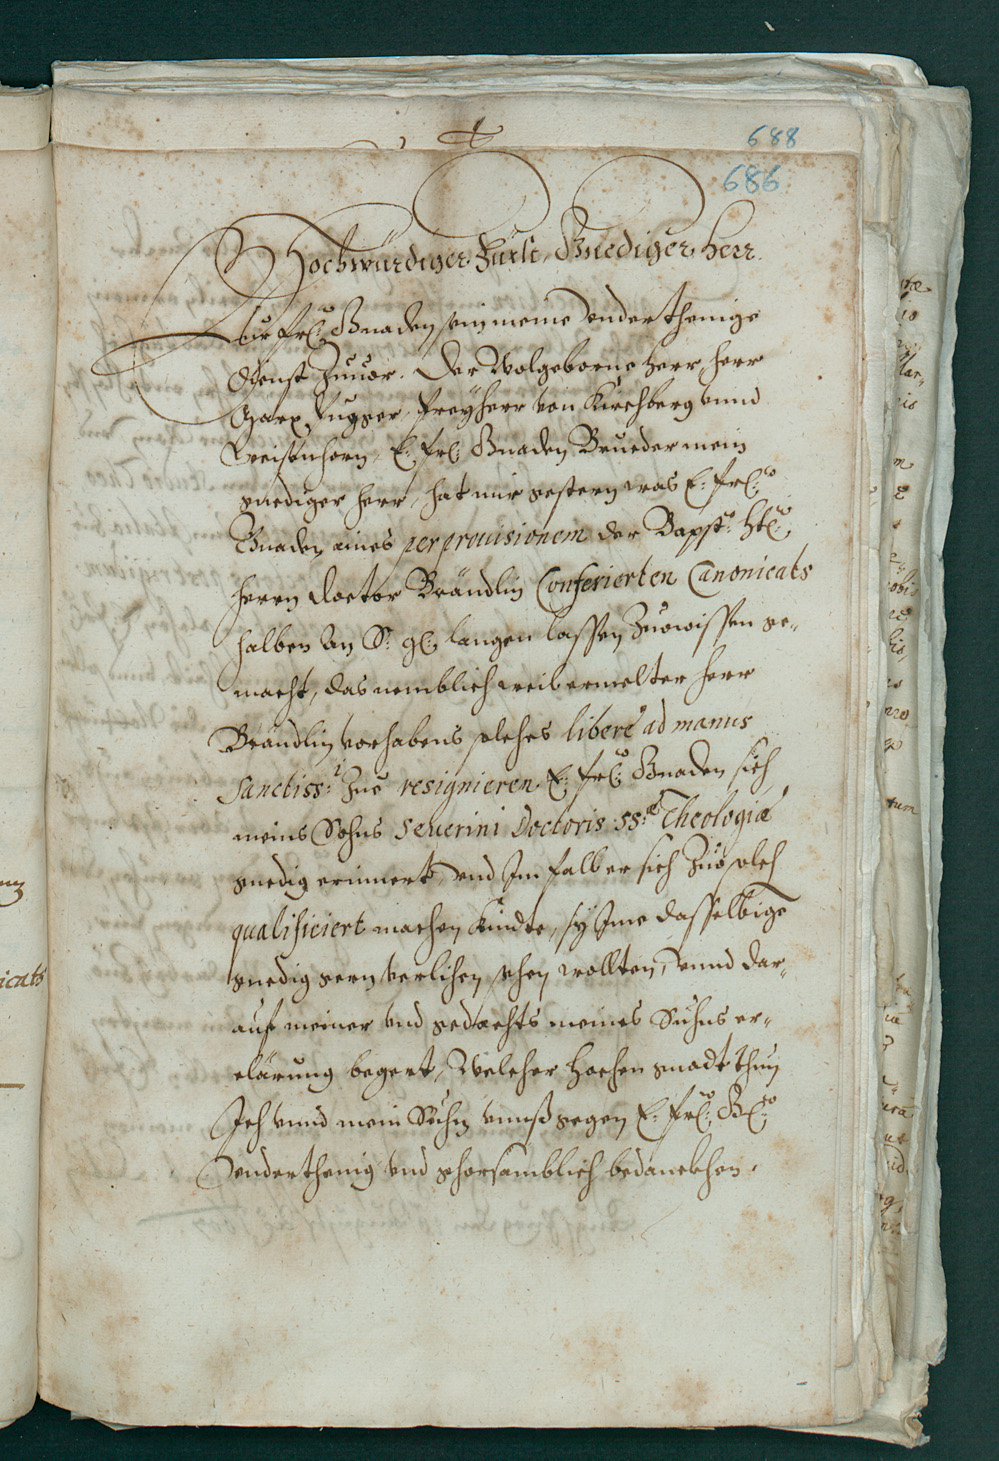 688
686
Hochwürdiger Fürst, Gnediger Herr.
Eur frl: Gnaden sein meine underthenige
Dienst zuuor. Der Wolgeborne Herr, herr
Marx Fugger, freyherr von Kirchberg vnnd
Weissenhorn, E: frl: Gnaden Brueder mein
gnediger herr, hat mir gestern was E: frl:
Gnaden aines per prouisionem der Bapst: Htl:
herrn doctor Brändlin Conferierten Canonicats
halben an Sr: gl: langen lassen zuowissen ge-
macht, das nemblich weil ermelter herr
Brändlin vorhabens solches liberè ad manus
Sanctiss:i zue resignieren E: frl: Gnaden sich
meins Sohns Seuerini Doctoris SS:æ Theologiæ
gnedig erinnert, vnd Im fall er sich zuo solch
qualificiert machen kindte, sy Ime dasselbige
gnedig gern verlihen sehen wollten, vnnd dar-
auf meiner vnd gedachts meines Suhns er-
clärung begert, Welcher hochen gnadt thun
Ich vnnd mein Suhn vnnß gegen E: frl: Gl:
vnderthenig vnd gehorsamblich bedanckhen.
icats